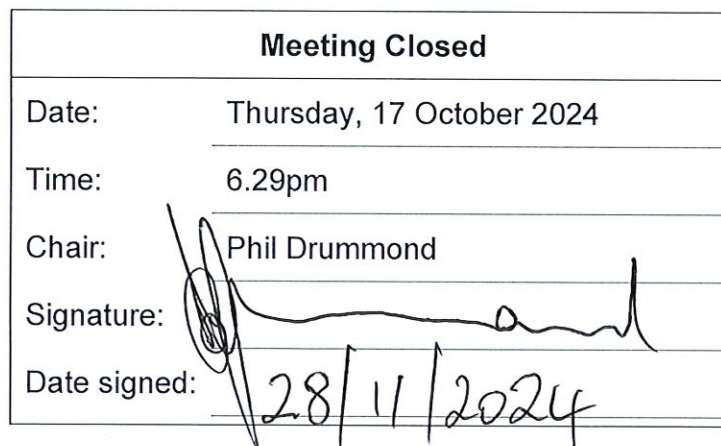 Meeting Closed
Date: Thursday, 17 October 2024
Time: 6.29pm
Chair: Phil Drummond
Signature:
Date signed: 28/11/2024